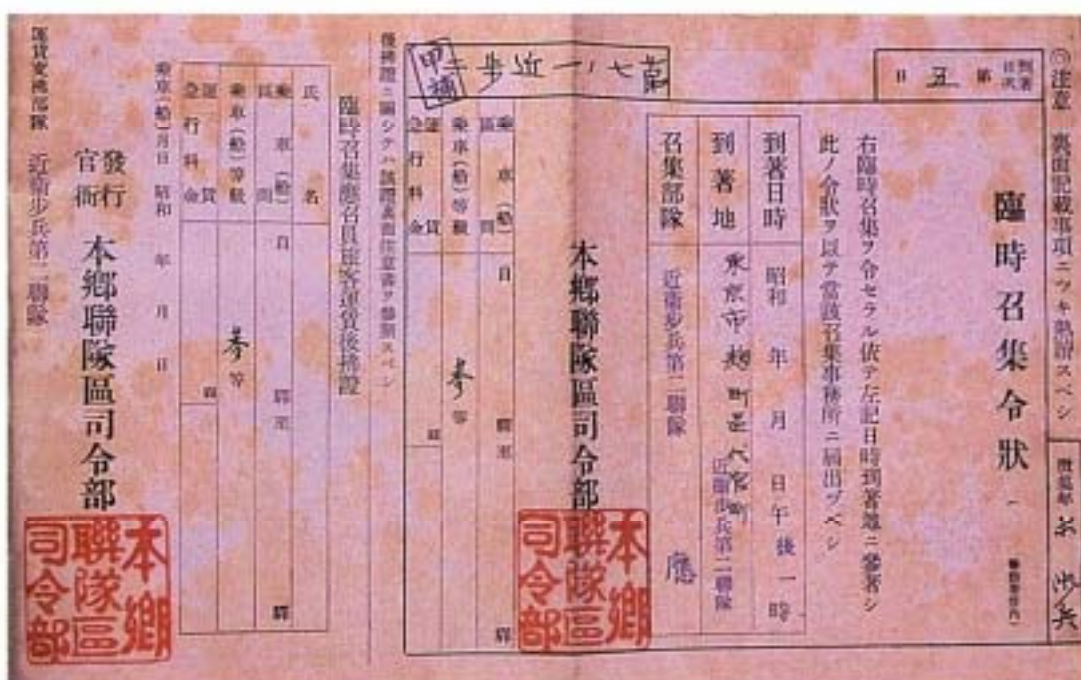 ◎注意 裏面記載事項ニツキ熟讀スベシ
到著日次 第五日
臨時召集令狀
右臨時召集ヲ令セラル依テ左記日時到著地ニ參著シ
此ノ令狀ヲ以テ當該召集事務所ニ届出ヅベシ
到著日時 昭和 年 月 日午後一時
到著地 東京市麹町區代官町
近衞步兵第二聯隊
召集部隊 近衞步兵第二聯隊 應
本鄕聯隊區司令部
本鄕聯隊區司令部
甲補
乘車(船)區間 自 驛至 驛
乘車(船)等級 參等
運賃
急行料金
臨時召集應召員旅客運賃後拂證
氏名
乘車(船)區間 自 驛至 驛
乘車(船)等級 參等
運賃
急行料金
乘車(船)月日 昭和 年 月 日
發行官衙 本鄕聯隊區司令部
本鄕聯隊區司令部
運賃支拂部隊 近衞步兵第二聯隊